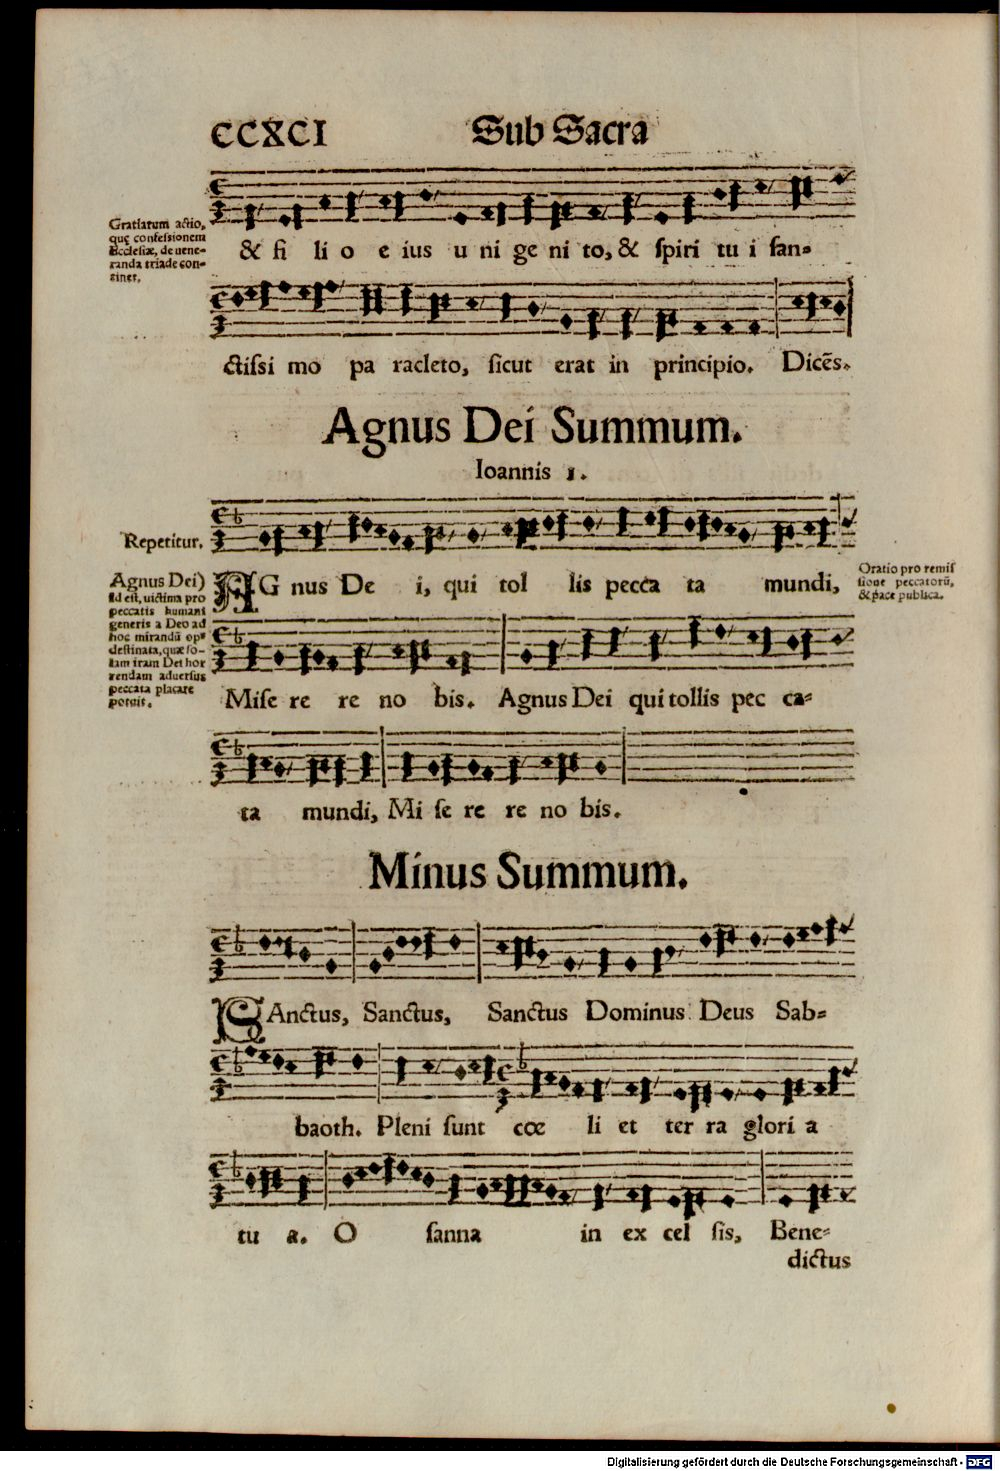 CCXCI Sub Sacra
Gratiarum actio,
quę confessionem
Ecclesiæ, de uene-
randa triade con-
tinet.
& fi li o e ius u ni ge ni to, & spiri tu i san-
ctissi mo pa racleto, sicut erat in principio. Dicēs.
Agnus Dei Summum.
Ioannis 1.
Repetitur.
Agnus Dei)
Id est, uictima pro
peccatis humani
generis a Deo ad
hoc mirandū op-
destinata, quæ so-
lam iram Dei hor
rendam aduersus
peccata placare
potuit.
AG nus De i, qui tol lis pecca ta mundi,
Oratio pro remis
sione peccatorū,
& pace publica.
Mise re re no bis. Agnus Dei qui tollis pec ca-
ta mundi, Mi se re re no bis.
Minus Summum.
SAnctus, Sanctus, Sanctus Dominus Deus Sab-
baoth. Pleni sunt cœ li et ter ra glori a
tu a. O sanna in ex cel sis, Bene-
dictus
Digitalisierung gefördert durch die Deutsche Forschungsgemeinschaft - DFG